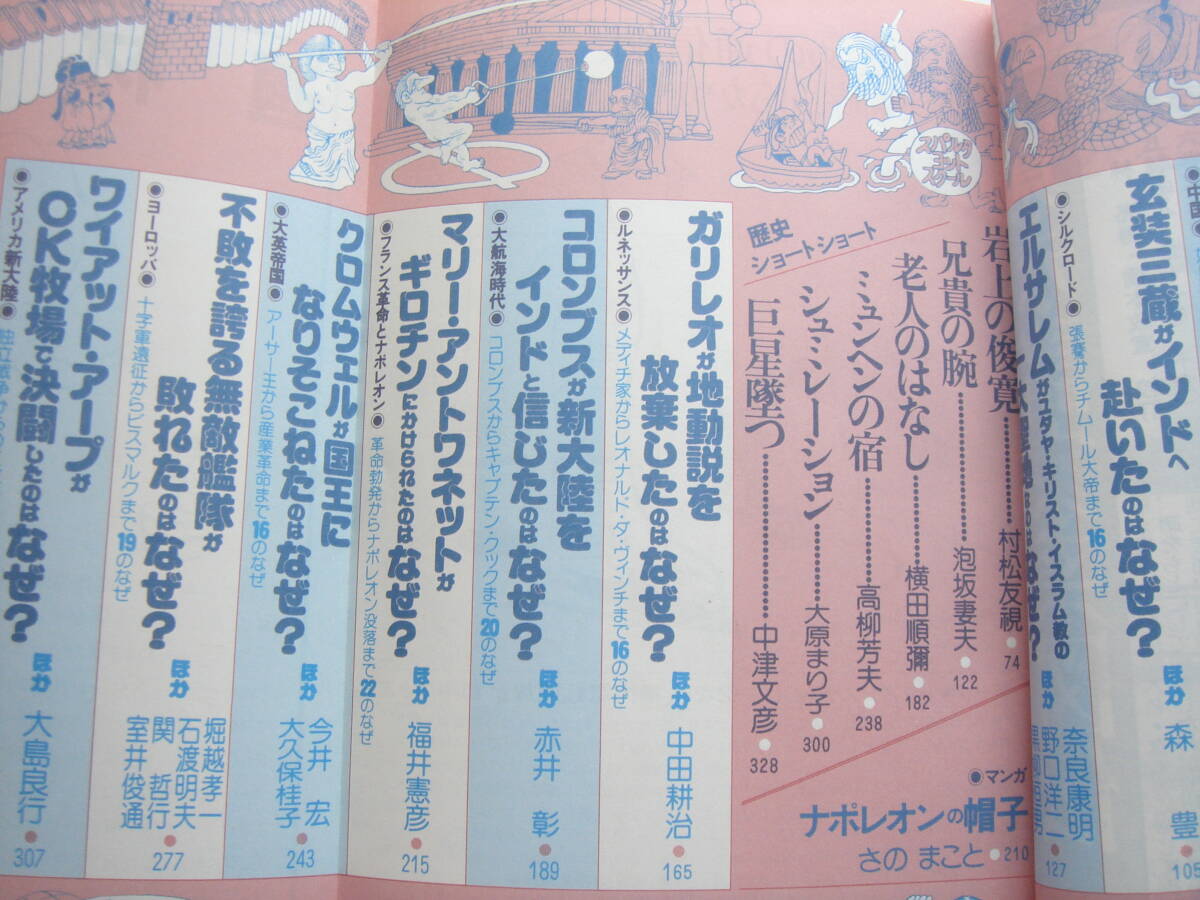 スパルタ
コント
スクール
中国●
玄奘三蔵がインドへ
赴いたのはなぜ?
ほか
森　豊●105
●シルクロード●
張騫からチムール大帝まで16のなぜ
エルサレムがユダヤ・キリスト・イスラム教の
なぜ?
ほか
奈良康明
野口洋二●127
歴史
ショートショート
岩上の俊寛………村松友視●74
兄貴の腕………泡坂妻夫●122
老人のはなし………横田順彌●182
ミュンヘンの宿………高柳芳夫●238
シュミレーション………大原まり子●300
巨星墜つ………中津文彦●328
●マンガ
ナポレオンの帽子
さの まこと●210
ガリレオが地動説を
放棄したのはなぜ?
ほか
中田耕治●165
●ルネッサンス●
メディチ家からレオナルド・ダ・ヴィンチまで16のなぜ
コロンブスが新大陸を
インドと信じたのはなぜ?
ほか
赤井　彰●189
●大航海時代●
コロンブスからキャプテン・クックまで20のなぜ
マリー・アントワネットが
ギロチンにかけられたのはなぜ?
ほか
福井憲彦●215
●フランス革命とナポレオン●
革命勃発からナポレオン没落まで22のなぜ
クロムウエルが国王に
なりそこねたのはなぜ?
ほか
今井　宏
大久保桂子●243
●大英帝国●
アーサー王から産業革命まで16のなぜ
不敗を誇る無敵艦隊が
敗れたのはなぜ?
ほか
堀越孝一
石渡明夫
関　哲行
室井俊通●277
●ヨーロッパ●
十字軍遠征からビスマルクまで19のなぜ
ワイアット・アープが
OK牧場で決闘したのはなぜ?
ほか
大島良行●307
●アメリカ新大陸●
独立戦争から